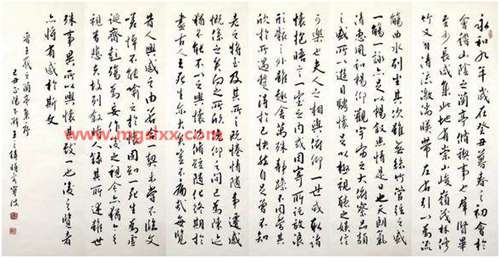 永和九年歲在癸丑暮春之初會於
會稽山陰之蘭亭修禊事也群賢畢
至少長咸集此地有崇山峻領茂林修
竹又有清流激湍映帶左右引以為流
觴曲水列坐其次雖無絲竹管弦之盛
一觴一詠亦足以暢敘幽情是日也天朗氣
清惠風和暢仰觀宇宙之大俯察品類
之盛所以遊目騁懷足以極視聽之娛信
可樂也夫人之相與俯仰一世或取諸
懷抱悟言一室之內或因寄所托放浪
形骸之外雖趣舍萬殊靜躁不同當其
欣於所遇暫得於己快然自足不知
老之將至及其所之既倦情隨事遷感
慨係之矣向之所欣俯仰之間已為陳跡
猶不能不以之興懷況修短隨化終期於
盡古人云死生亦大矣豈不痛哉每覽
昔人興感之由若合一契未嘗不臨文
嗟悼不能喻之於懷固知一死生為虛
誕齊彭殤為妄作後之視今亦猶今之
視昔悲夫故列敘時人錄其所述雖世
殊事異所以興懷其致一也後之覽者
亦將有感於斯文
www.mgslxx.com